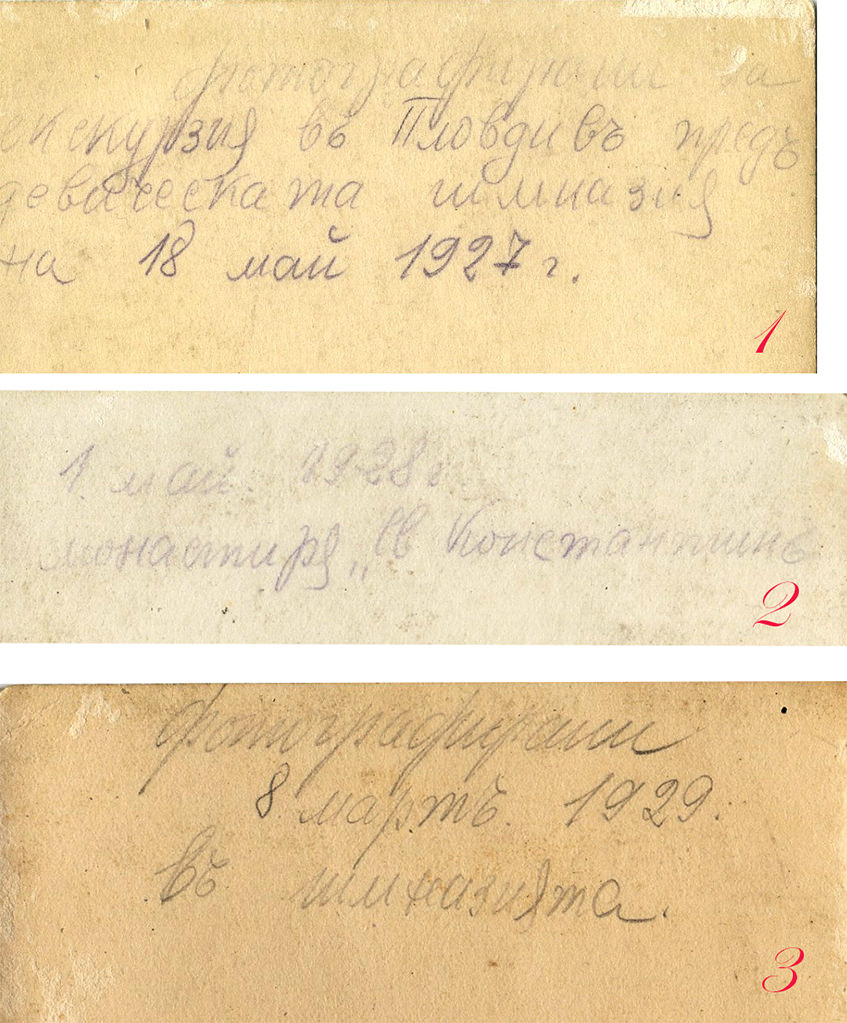 фотографирани на
екскурзия въ Пловдивъ предъ
девическата гимназия
на 18 май 1927 г.
1
1. май 1928 г
монастиря „Св Константинъ
2
фотографирани
8 мартъ. 1929.
въ гимназията.
3